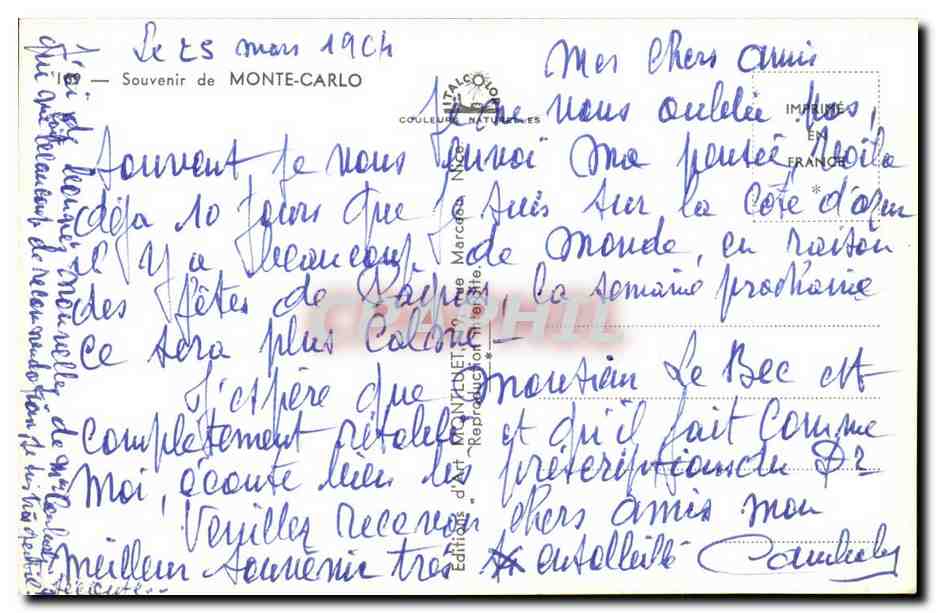 Le 25 mars 1964
Mes chers amis
169 — Souvenir de MONTE-CARLO
ITALCOLOR
COULEURS NATURELLES
IMPRIMÉ
EN
FRANCE
*
Je ne vous oublie pas,
souvent, je vous envoi ma pensée, voila
déja 10 jours que je suis sur la Côte d'azur
il y a beaucoup de monde, en raison
des fêtes de Paques, la semaine prochaine
ce sera plus calme -
J'espère que monsieur Le Bec est
complètement rétabli et qu'il fait comme
moi, écoute bien les préscriptions du Dr
Veuillez recevoir, chers amis mon
meilleur souvenir très ensoleillé
Editions d'Art MONTLUET, 2 rue Marceau Nice
"Reproduction interdite."
J'ai de bonnes nouvelles de Mme
qui me fait beaucoup de
CPAPHIL